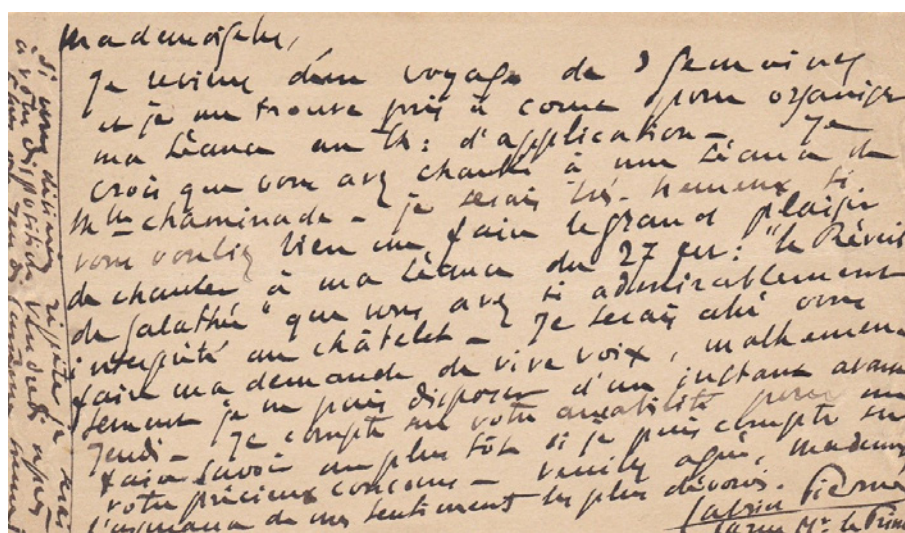 Mademoiselle,
Je reviens d'un voyage de 3 semaines
et je me trouve pris à court pour organiser
ma séance au th: d'application - Je
crois que vous avez chanté à une séance de
Mlle Chaminade - je serais très heureux si
vous vouliez bien me faire le grand plaisir
de chanter à ma séance du 27 cr: "le Réveil
de Galathée" que vous avez si admirablement
interprété au châtelet - Je serais allé vous
faire ma demande de vive voix, malheureu-
sement je ne puis disposer d'un instant avant
Jeudi - Je compte sur votre amabilité pour me
faire savoir au plus tôt si je puis compter sur
votre précieux concours - veuillez agréer, Mademoi
l'assurance de mes sentiments les plus dévoués.
Gabriel Pierné
rue Mr. le Prince
Si vous désiriez répéter je suis
à votre disposition Vendredi après